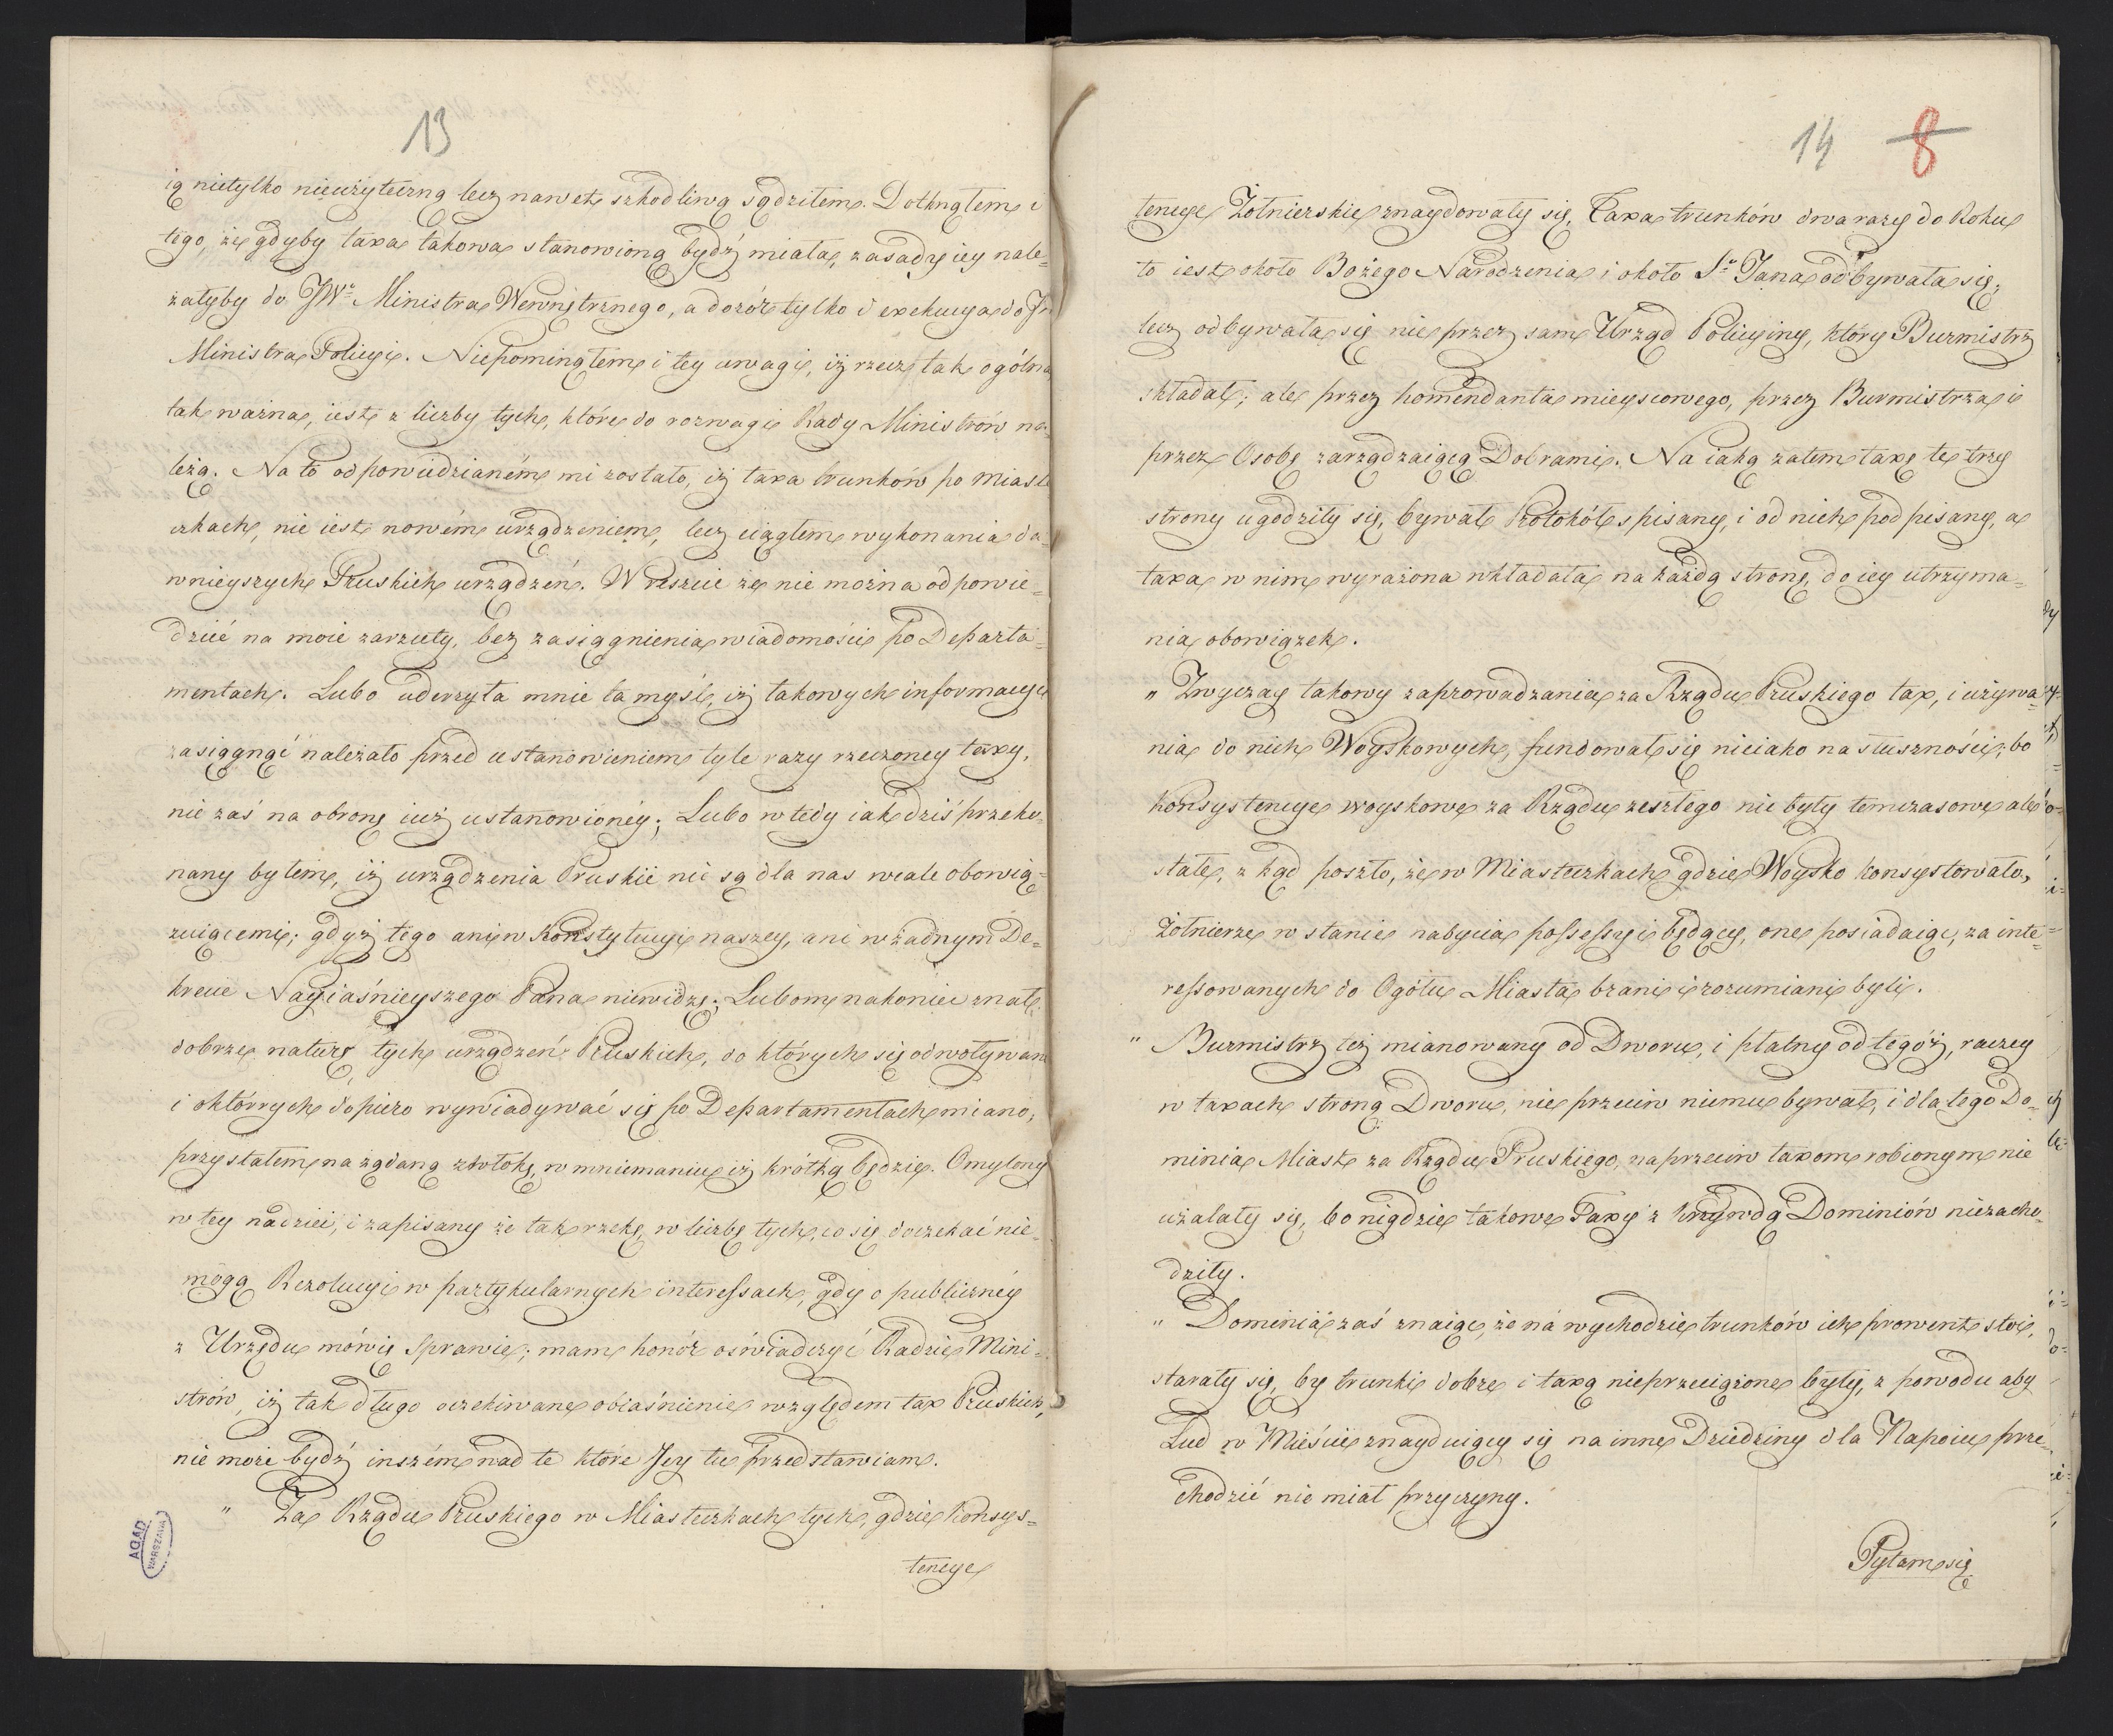 13
ią nietylko nieużyteczną lecz nawet szkodliwą sądziłem. Dotknąłem i
tego, że gdyby taxa takowa stanowioną bydź miała, zasady iey nale=
żałyby do JWo Ministra Wewnętrznego, a dozór tylko i exekucya do
Ministra Policyi. Niepominąłem i tey uwagi, iż rzecz tak ogólna
tak ważna, iest z liczby tych, które do rozwagi Rady Ministrów na=
leżą. Na to odpowiedzianém mi zostało, iż taxa trunków po Miaste
czkach, nie iest nowém urządzeniem, lecz ciągłem wykonania da=
wnieyszych Pruskich urządzeń. Wreszcie że nie można odpowie=
dzieć na moie zarzuty, bez zasiągnienia wiadomości po Departa=
mentach. Lubo uderzyła mnie ta myśl, iż takowych informacyi
zasiągnąć należało przed ustanowieniem tyle razy rzeczoney taxy,
nie zaś na obronę iuż ustanowionéy; Lubo wtedy iak dziś przeko=
nany byłem, iż urządzenia Pruskie nie są dla nas wcale obowią=
zuiącemi; gdyż tego ani w Konstytucyi naszey, ani w żadnym De=
krecie Nayiaśnieyszego Pana niewidzę; Lubom nakoniec znał
dobrze naturę tych urządzeń Pruskich, do których się odwoływano
i o których dopiero wywiadywać się po Departamentach miano;
przystałem na żądaną zwłokę, w mniemaniu iż krótką będzie. Omylony
w tey nadziei, i zapisany że tak rzekę, w liczbę tych, co się doczekać nie=
mogą Rezolucyi w partykularnych interessach, gdy o publicznéy
z Urzędu mówię Sprawie; mam honór oświadczyć Radzie Mini=
strów, iż tak długo oczekiwane obiaśnienie względem tax Pruskich,
nie może bydź inszém nad te które Jey tu przedstawiam.
" Za Rządu Pruskiego w Miasteczkach tych, gdzie Konsys=
tencye
AGAD
WARSZAWA
14 8
tencye Żołnierskie znaydowały się, Taxa trunków dwa razy do Roku
to iest około Bożego Narodzenia i około So Jana odbywała się;
lecz odbywała się nie przez sam Urząd Policyiny, który Burmistrz
składał; ale przez komendanta mieyscowego, przez Burmistrza i
przez Osobę zarządzaiącą Dobrami. Na iaką zatem taxę te trzy
strony ugodziły się, bywał Protokół spisany, i od nich podpisany, a
taxa w nim wyrażona wkładała na każdą stronę, do iey utrzyma=
nia obowiązek.
" Zwyczay takowy zaprowadzania za Rządu Pruskiego tax, i używa=
nia do nich Woyskowych, fundował się nieiako na słuszności; bo
konsystencye woyskowe za Rządu zeszłego nie były temczasowe ale
stałe, z kąd poszło, że w Miasteczkach gdzie Woysko konsystowało,
żołnierze w stanie nabycia possessyi będący, one posiadaiąc, za inte=
ressowanych do Ogółu Miasta brani i rozumiani byli.
" Burmistrz też mianowany od Dworu, i płatny od tegóż, raczey
w taxach stroną Dworu, nie przeciw niemu bywał, i dla tego Do=
minia Miast za Rządu Pruskiego, naprzeciw taxom robionym nie
użalały się, bo nigdzie takowe Taxy z krzywdą Dominiów niezacho=
dziły.
" Dominia zaś znaiąc, że na wychodzie trunków ich prowent stoi,
starały się, by trunki dobre i taxą nieprzeciążone były, z powodu aby
Lud w Mieście znayduiący się na inne Dziedziny dla Napoiu prze=
chodzić nie miał przyczyny.
Pytam się